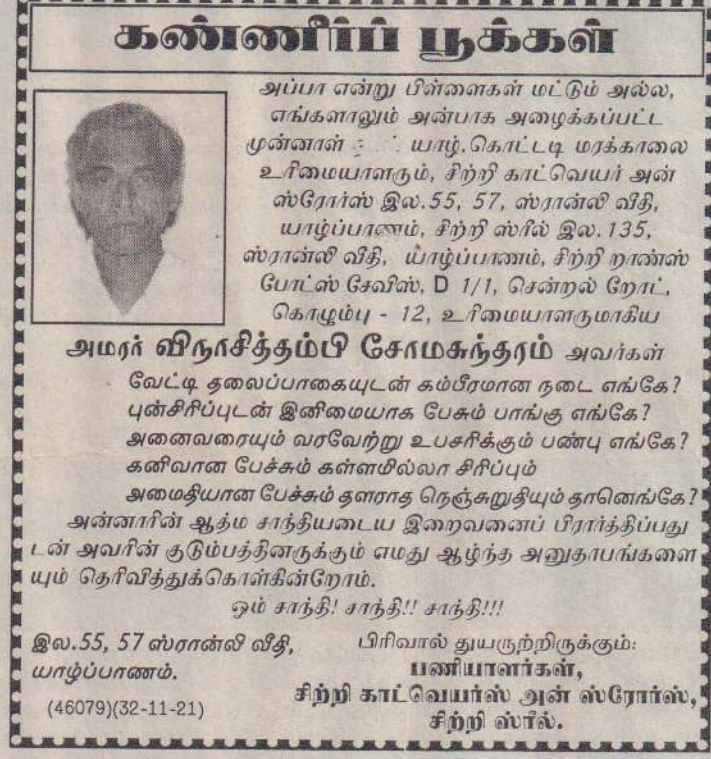 கண்ணீர்ப் பூக்கள்
அப்பா என்று பிள்ளைகள் மட்டும் அல்ல,
எங்களாலும் அன்பாக அழைக்கப்பட்ட
முன்னாள் யாழ்.கொட்டடி மரக்காலை
உரிமையாளரும், சிற்றி காட்வெயர் அன்
ஸ்ரோர்ஸ் இல.55, 57, ஸ்ரான்லி வீதி,
யாழ்ப்பாணம், சிற்றி ஸ்ரீல் இல.135,
ஸ்ரான்லி வீதி, யாழ்ப்பாணம், சிற்றி றான்ஸ்
போட்ஸ் சேவிஸ், D 1/1, சென்றல் றோட்,
கொழும்பு - 12, உரிமையாளருமாகிய
அமரர் விநாசித்தம்பி சோமசுந்தரம் அவர்கள்
வேட்டி தலைப்பாகையுடன் கம்பீரமான நடை எங்கே?
புன்சிரிப்புடன் இனிமையாக பேசும் பாங்கு எங்கே?
அனைவரையும் வரவேற்று உபசரிக்கும் பண்பு எங்கே?
கனிவான பேச்சும் கள்ளமில்லா சிரிப்பும்
அமைதியான பேச்சும் தளராத நெஞ்சுறுதியும் தானெங்கே?
அன்னாரின் ஆத்ம சாந்தியடைய இறைவனைப் பிரார்த்திப்பது
டன் அவரின் குடும்பத்தினருக்கும் எமது ஆழ்ந்த அனுதாபங்களை
யும் தெரிவித்துக்கொள்கின்றோம்.
ஓம் சாந்தி! சாந்தி!! சாந்தி!!!
இல.55, 57 ஸ்ரான்லி வீதி,
யாழ்ப்பாணம்.
(46079)(32-11-21)
பிரிவால் துயருற்றிருக்கும்:
பணியாளர்கள்,
சிற்றி காட்வெயர்ஸ் அன் ஸ்ரோர்ஸ்,
சிற்றி ஸ்ரீல்.